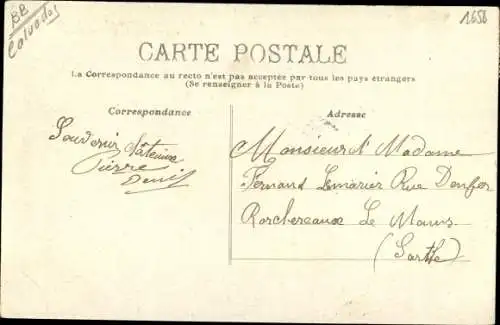 BB
Calvados
1658
CARTE POSTALE
La Correspondance au recto n'est pas acceptée par tous les pays étrangers
(Se renseigner à la Poste)
Correspondance
Souvenir
Pierre
Denis
Adresse
Monsieur et Madame
Fernand Lemarier Rue Denfer
Rorchereaux Le Mans
(Sarthe)